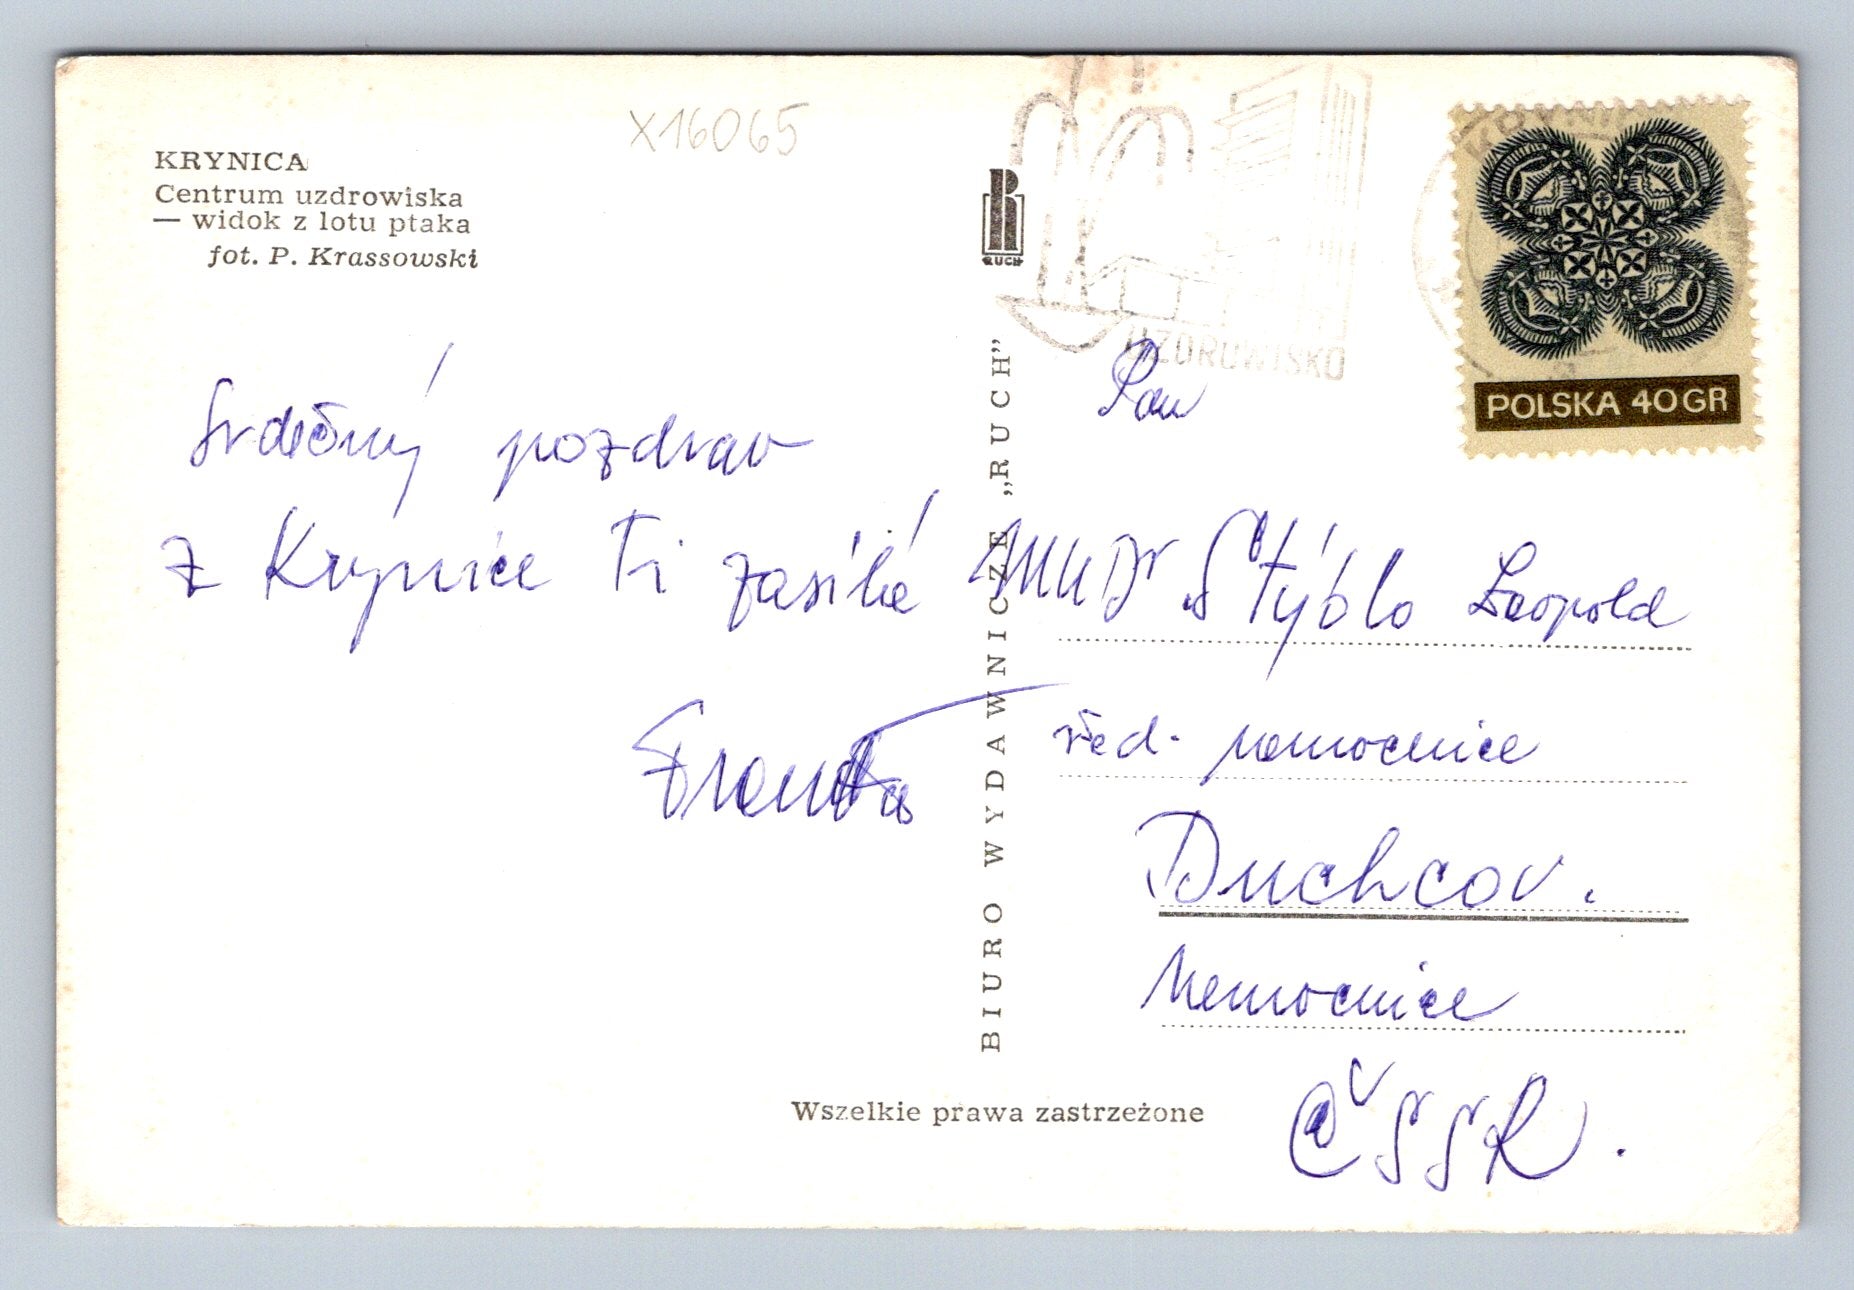 X16065
KRYNICA
Centrum uzdrowiska
— widok z lotu ptaka
fot. P. Krassowski
Srdečný pozdrav
z Krynice Ti zasílá
Franta
RUCH
BIURO WYDAWNICZE „RUCH”
Wszelkie prawa zastrzeżone
UZDROWISKO
POLSKA 40GR
Pan
MUDr Stýblo Leopold
řed. nemocnice
Duchcov.
Nemocnice
ČSSR.